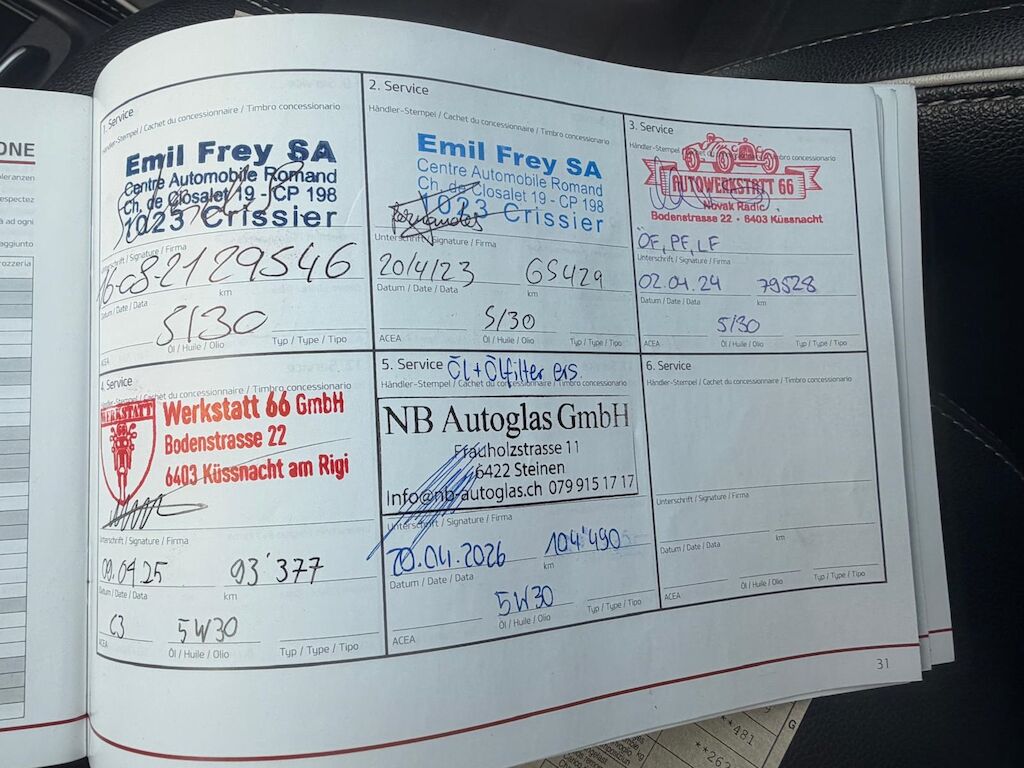 ONE
1. Service
Händler-Stempel / Cachet du concessionnaire / Timbro concessionario
Emil Frey SA
Centre Automobile Romand
Ch. de Closalet 19 - CP 198
1023 Crissier
Unterschrift / Signature / Firma
16-08-21 29546
Datum / Date / Data
km
5/30
ACEA
Öl / Huile / Olio
Typ / Type / Tipo
2. Service
Händler-Stempel / Cachet du concessionnaire / Timbro concessionario
Emil Frey SA
Centre Automobile Romand
Ch. de Closalet 19 - CP 198
1023 Crissier
Unterschrift / Signature / Firma
20/4/23 65429
Datum / Date / Data
km
5/30
ACEA
Öl / Huile / Olio
Typ / Type / Tipo
3. Service
Händler-Stempel / Cachet du concessionnaire / Timbro concessionario
AUTOWERKSTATT 66
Novak Radic
Bodenstrasse 22 • 6403 Küssnacht
ÖF, PF, LF
Unterschrift / Signature / Firma
02.04.24 79528
Datum / Date / Data
km
5/30
ACEA
Öl / Huile / Olio
Typ / Type / Tipo
4. Service
Händler-Stempel / Cachet du concessionnaire / Timbro concessionario
WERKSTATT
Werkstatt 66 GmbH
Bodenstrasse 22
6403 Küssnacht am Rigi
Unterschrift / Signature / Firma
09.04.25 93'377
Datum / Date / Data
km
C3 5W30
ACEA
Öl / Huile / Olio
Typ / Type / Tipo
5. Service Öl + Ölfilter ers.
Händler-Stempel / Cachet du concessionnaire / Timbro concessionario
NB Autoglas GmbH
Frauholzstrasse 11
6422 Steinen
Info@nb-autoglas.ch 079 915 17 17
Unterschrift / Signature / Firma
20.04.2026 104'490
Datum / Date / Data
km
5W30
ACEA
Öl / Huile / Olio
Typ / Type / Tipo
6. Service
Händler-Stempel / Cachet du concessionnaire / Timbro concessionario
Unterschrift / Signature / Firma
Datum / Date / Data
km
ACEA
Öl / Huile / Olio
Typ / Type / Tipo
31
**481
G